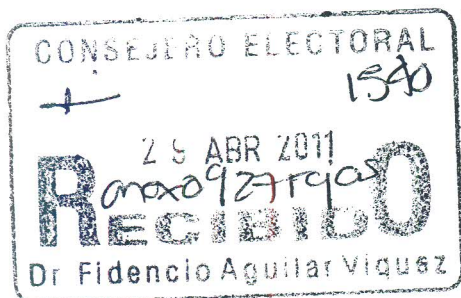 CONSEJERO ELECTORAL
1540
ABR 2011
anexo 92 Fojas
RECIBIDO
Dr Fidencio Aguilar Viquez